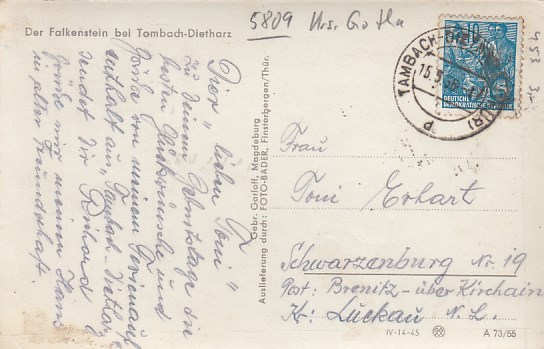 5809 Krs. Gotha
Der Falkenstein bei Tambach-Dietharz
Dir, liebe Toni
zu Deinem Geburtstage die
besten Glückwünsche und
Grüße von meinem Ferienauf-
enthalt aus Tambach-Dietharz
sendet Dir Richard
Grüße mir meinen Hans
in alter Freundschaft.
Gebr. Garloff, Magdeburg
Auslieferung durch: FOTO-BADER, Finsterbergen/Thür.
TAMBACH-DIETHARZ (THÜR)
DEUTSCHE
DEMOKRATISCHE
5
453 3-
Frau
Toni Erhart
Schwarzenburg Nr. 19
Post: Brenitz-über Kirchain
Kr. Luckau N. L.
IV-14-45
A 73/55